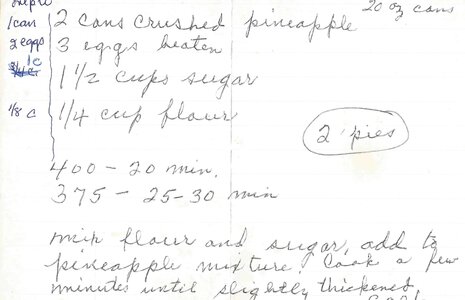 1 can 2 cans crushed pineapple 20 oz cans
2 eggs 3 eggs beaten
1 c 1 1/2 cups sugar
1/8 c 1/4 cup flour
2 pies
400 - 20 min.
375 - 25-30 min
mix flour and sugar, add to
pineapple mixture. Cook a few
minutes until slightly thickened.
Cool